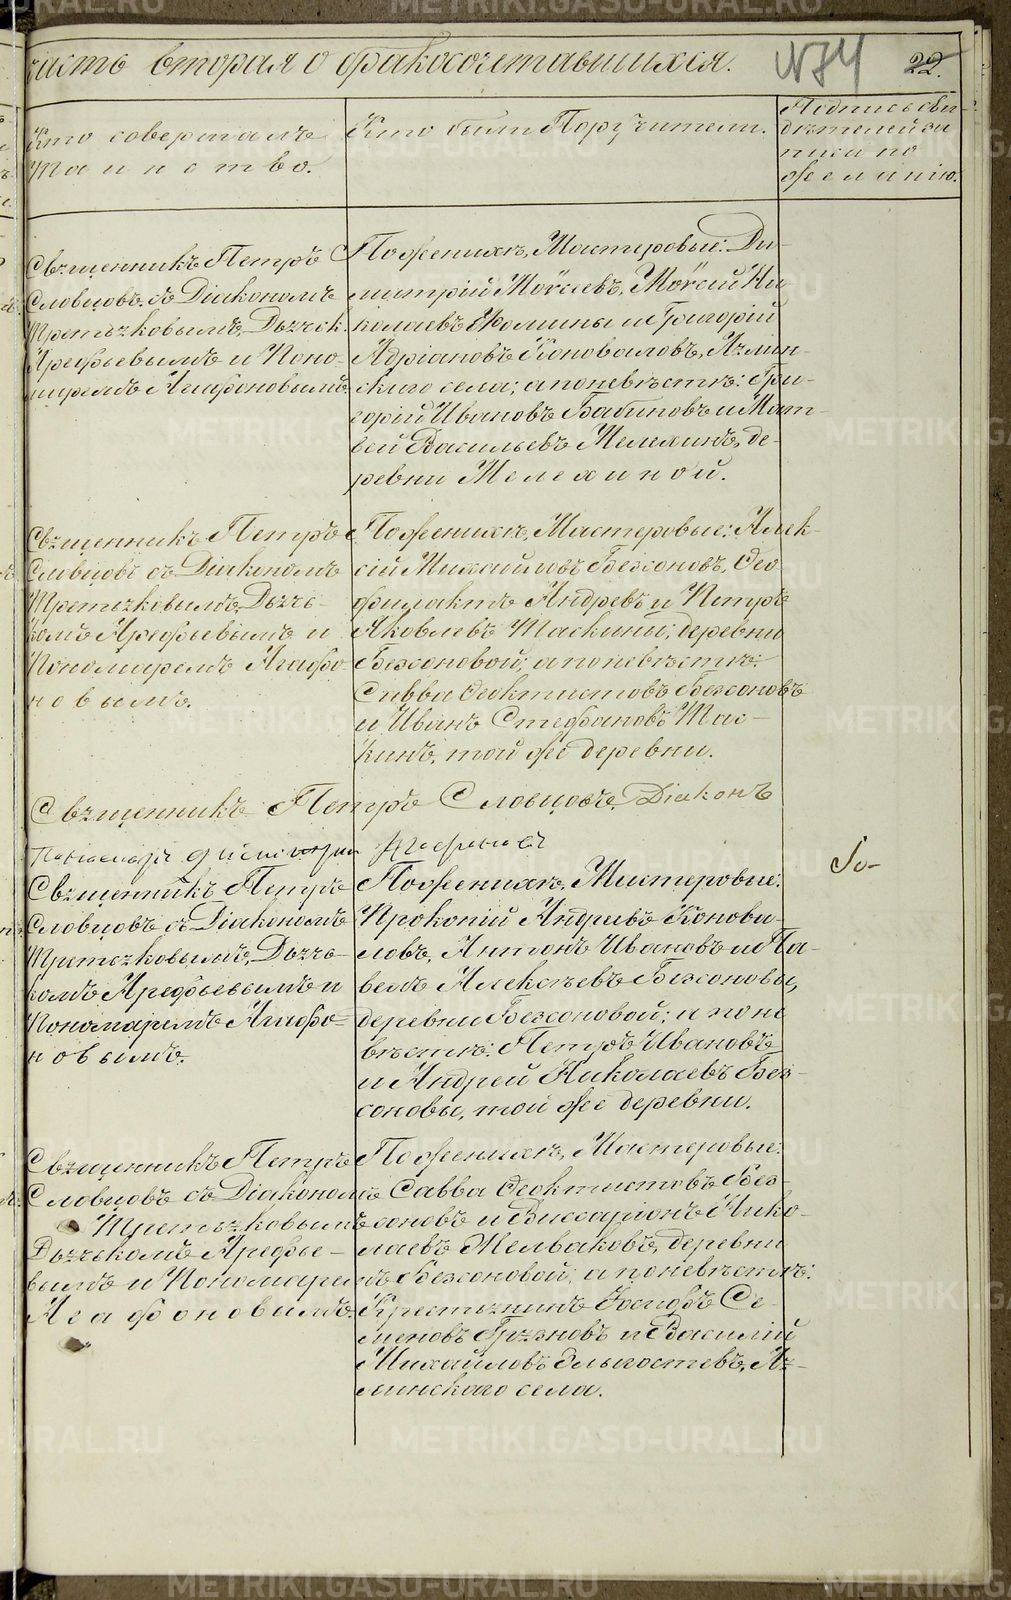 часть вторая о бракосочетавшихся. №74 22.
Кто совершалъ
Таинство.
Кто были Поручители.
Подпись сви-
дѣтелей за
писи по
желанію.
Священникъ Петръ
Словцовъ съ Діакономъ
Третьяковымъ, Дьячк.
Арефьевымъ и Поно-
маремъ Агафоновымъ.
По женихѣ, Мастеровые: Ди-
митрій Моѵсеевъ, Моѵсей Ни
колаевъ Фомины и Григорій
Адріановъ Коноваловъ, Аямин-
скаго села; а по невѣстѣ: Гри-
горій Ивановъ Бабиновъ и Мат-
вей Васильевъ Мелехинъ, де-
ревни Мелехиной.
Священникъ Петръ
Словцовъ съ Діакономъ
Третьяковымъ, Дьяч-
комъ Арефьевымъ и
Пономаремъ Агафо-
новымъ.
По женихѣ, Мастеровые: Алек-
сій Михайловъ Безсоновъ, Ѳео
филактъ Андреевъ и Петръ
Яковлевъ Таскины; деревни
Безсоновой; а по невѣстѣ:
Савва Ѳеоктистовъ Безсоновъ
и Иванъ Стефановъ Тас-
кинъ, той же деревни.
Священникъ Петръ Словцовъ, Діаконъ
Священникъ Петръ
Словцовъ съ Діакономъ
Третьяковымъ, Дьяч-
комъ Арефьевымъ и
Пономаремъ Агафо-
новымъ.
По женихѣ, Мастеровые:
Прокопій Андреевъ Конова-
ловъ, Антонъ Ивановъ и Па-
велъ Алексѣевъ Безсоновы,
деревни Безсоновой; а по не
вѣстѣ: Петръ Ивановъ
и Андрей Николаевъ Без-
соновы, той же деревни.
Священникъ Петръ
Словцовъ съ Діакономъ
Третьяковымъ
Дьячькомъ Арефье-
вымъ и Пономаремъ
Агафоновымъ.
По женихѣ, Мастеровые:
Савва Ѳеоктистовъ Без-
соновъ и Виссаріонъ Нико-
лаевъ Желваковъ, деревни
Безсоновой; а по невѣстѣ:
Крестьянинъ Іосифъ Се-
меновъ Грязновъ и Василій
Михайловъ Ельгостевъ, Ая-
минскаго села.
METRIKI.GASO-URAL.RU